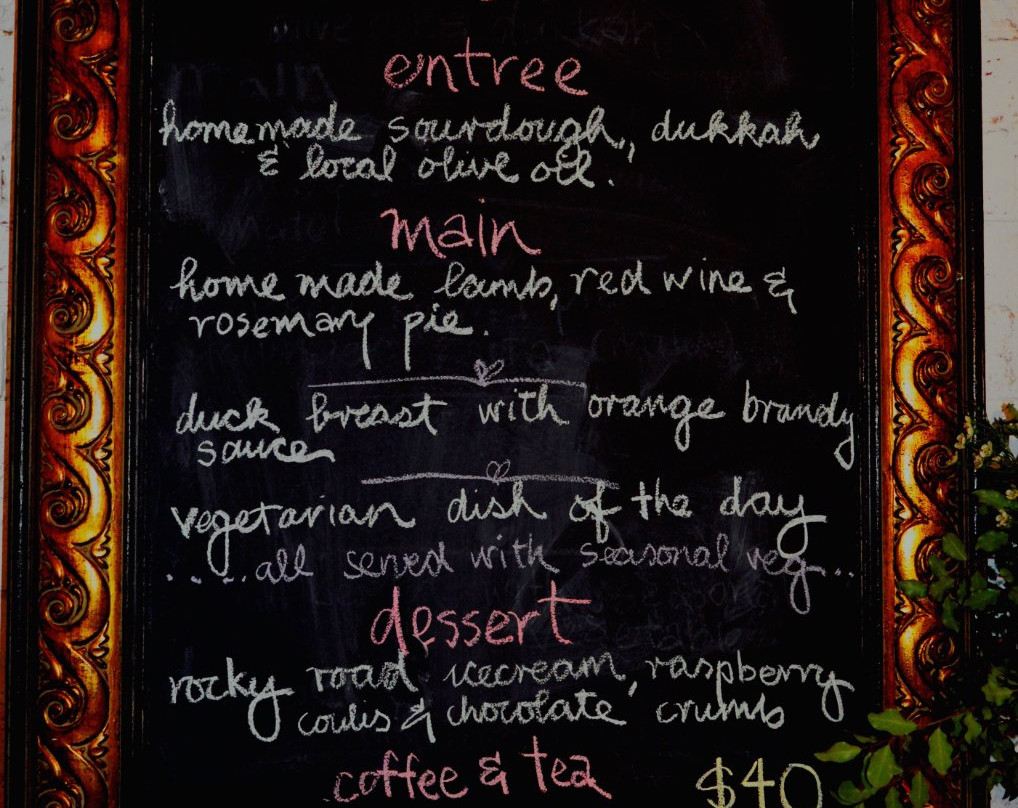 entree
homemade sourdough, dukkah
& local olive oil.
main
home made lamb, red wine &
rosemary pie.
duck breast with orange brandy
sauce
vegetarian dish of the day
.....all served with seasonal veg...
dessert
rocky road icecream, raspberry
coulis & chocolate crumb
coffee & tea $40